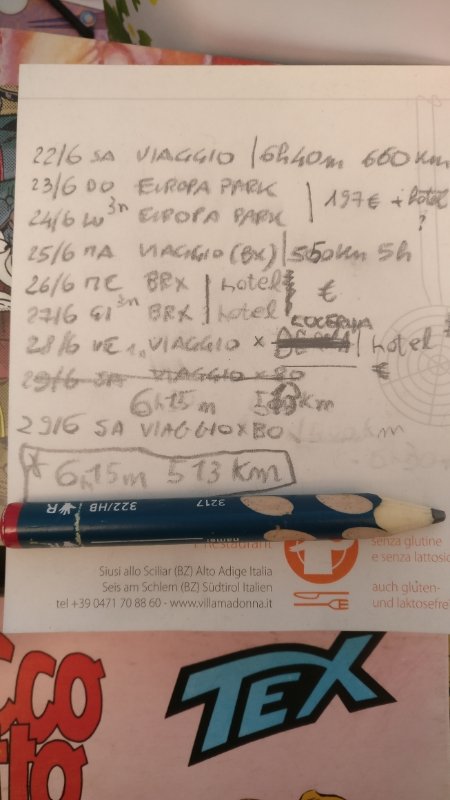 22/6 SA VIAGGIO | 6h40m 660 km
23/6 DO EUROPA PARK
197€ + hotel
?
24/6 LU 3n EUROPA PARK
25/6 MA VIAGGIO (BX) | 550km 5h
26/6 ME BRX | hotel
€
27/6 GI 3n BRX | hotel
LUCERNA
28/6 VE 1n VIAGGIO x | hotel
€
29/6 SA VIAGGIO x BO
6h15m 513 km
29/6 SA VIAGGIO x BO
6h15m 513 km
®R 322/HB
3217
name:
Restaurant
senza glutine
e senza lattosio
Siusi allo Sciliar (BZ) Alto Adige Italia
Seis am Schlern (BZ) Südtirol Italien
tel +39 0471 70 88 60 - www.villamadonna.it
auch glúten-
und laktosefre
TEX